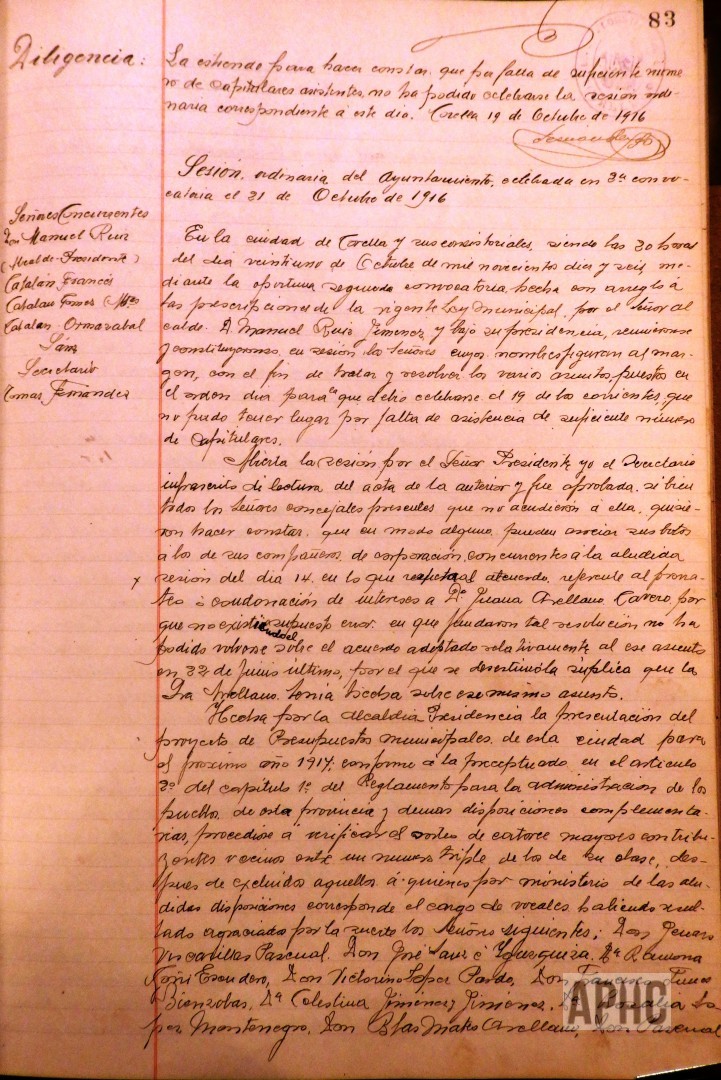 83
Diligencia:
La estiende para hacer constar que por falta de suficiente nume-
ro de capitulares asistentes, no ha podido celebrarse la sesión ordi-
naria correspondiente á este dia. Corella 19 de Octubre de 1916
Sesión, ordinaria, del Ayuntamiento, celebrada en 2ª convo-
catoria el 21 de Octubre de 1916
Señores Concurrentes
Don Manuel Ruiz
(Alcalde-Presidente)
Catalán Francés
Catalan
Catalan Ormazabal
Sáinz
Secretario
Tomas Fernández
En la ciudad de Corella y sus consistoriales, siendo las 20 horas
del dia veintiuno de Octubre de mil novecientos diez y seis, me-
diante la oportuna segunda convocatoria hecha con arreglo á
las prescripciones de la vigente Ley Municipal, por el Señor al-
calde D. Manuel Ruiz Jimenez y bajo su presidencia, reunieronse
y constituyeronse, en sesión los Señores cuyos nombres figuran al mar-
gen, con el fin de tratar y resolver los varios asuntos puestos en
el orden dia para la que debio celebrarse el 19 de los corrientes, que
no pudo tener lugar por falta de asistencia de suficiente número
de capitulares.
Abierta la sesión por el Señor Presidente yo el Secretario
infrascrito di lectura del acta de la anterior y fue aprobada, si bien
todos los Señores concejales presentes que no acudieron á ella, quisie-
ron hacer constar, que en modo alguno pueden asociar sus votos
á los de sus compañeros de corporación concurrentes á la aludida
x sesión del dia 14 en lo que respecta al acuerdo referente al prorra-
teo ó condonación de intereses a Dª Juana Arellano Cavero, por
que no existiendo el supuesto error en que fundaron tal resolución no ha
podido volverse sobre el acuerdo adoptado relativamente al ese asunto
en 22 de Junio último, por el que se desestimó la súplica que la
Sra Arellano tenía hecha sobre ese mismo asunto.
Hecha por la Alcaldia Presidencia la presentación del
proyecto de Presupuestos municipales de esta ciudad para
el próximo año 1917, conforme á lo preceptuado en el articulo
2º del capitulo 1º del Reglamento para la administración de los
pueblos de esta provincia y demas disposiciones complementa-
rias, procediose á verificar el sorteo de catorce mayores contribu-
yentes vecinos entre un numero triple de los de su clase, des-
pues de excluidos aquellos á quienes por ministerio de las alu-
didas disposiciones corresponde el cargo de vocales, habiendo resul-
tado agraciados por la suerte los Señores siguientes: Don Genaro
Virto Pascual, Don José Sainz é Yguzquiza, Dª Ramona
Goñi Escudero, Don Victorino Lopez Pardo, Don Francisco
Bienzobas, Dª Celestina Jimenez y Jimenez, Rosalia Lo-
pez Montenegro, Don Blas Mateo Arellano, Don Pascual
APHC